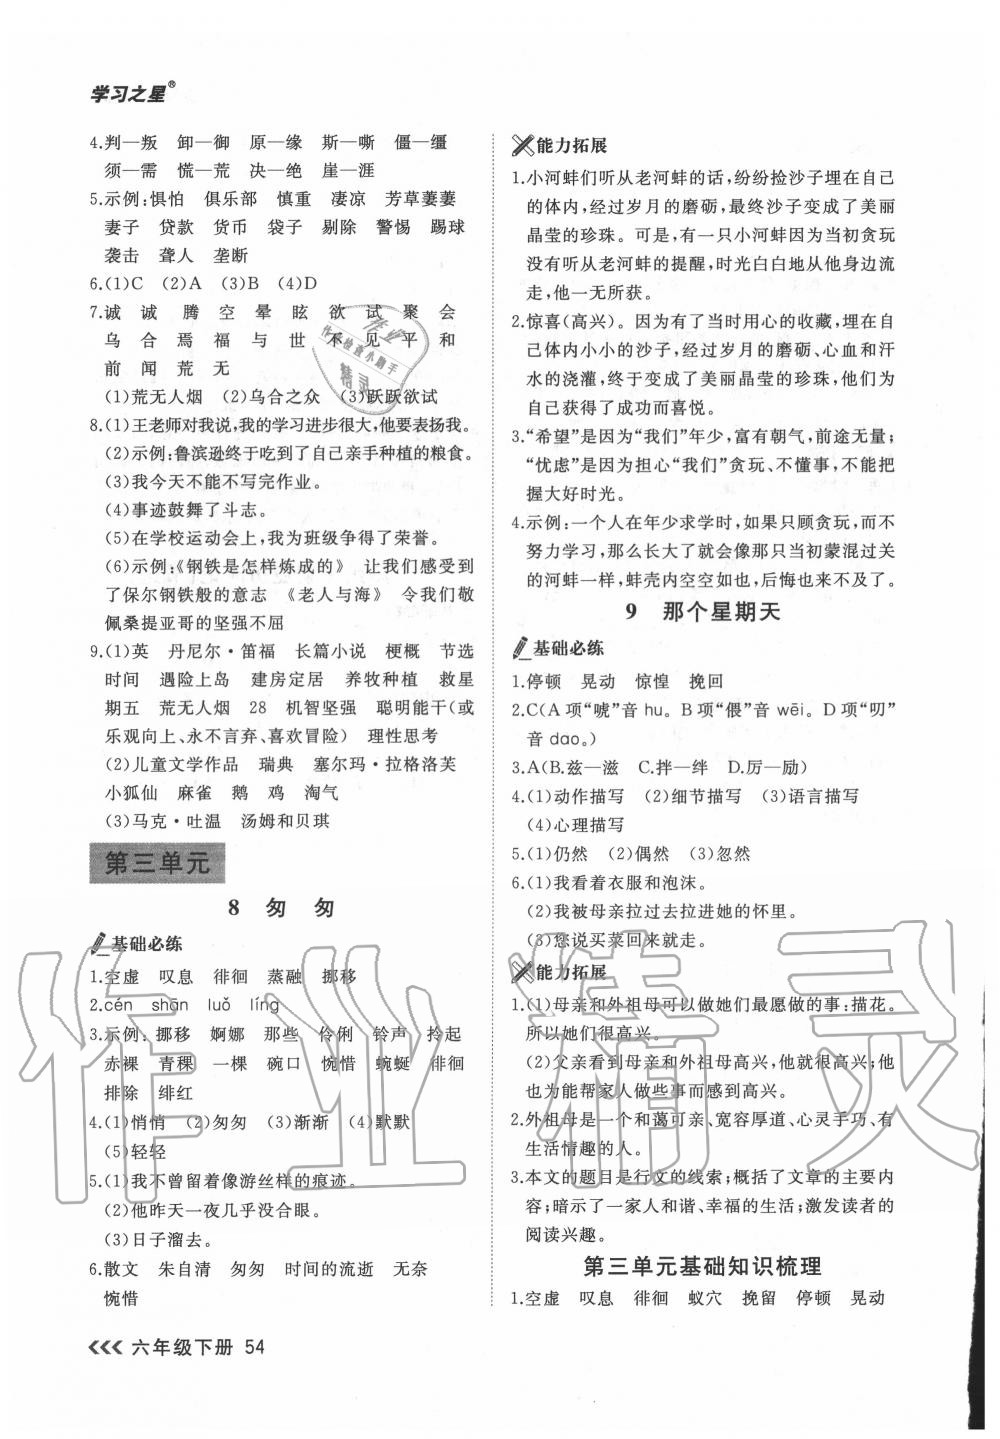 学习之星®
4.判—叛 卸—御 原—缘 斯—嘶 僵—缰
须—需 慌—荒 决—绝 崖—涯
5.示例:惧怕 俱乐部 慎重 凄凉 芳草萋萋
妻子 贷款 货币 袋子 剔除 警惕 踢球
袭击 聋人 垄断
6.(1)C (2)A (3)B (4)D
7.诚 诚 腾 空 晕 眩 欲 试 聚 会
乌 合 焉 福 与 世 不 见 平 和
前 闻 荒 无
(1)荒无人烟 (2)乌合之众 (3)跃跃欲试
8.(1)王老师对我说,我的学习进步很大,他要表扬我。
(2)示例:鲁滨逊终于吃到了自己亲手种植的粮食。
(3)我今天不能不写完作业。
(4)事迹鼓舞了斗志。
(5)在学校运动会上,我为班级争得了荣誉。
(6)示例:《钢铁是怎样炼成的》 让我们感受到
了保尔钢铁般的意志 《老人与海》 令我们敬
佩桑提亚哥的坚强不屈
9.(1)英 丹尼尔·笛福 长篇小说 梗概 节选
时间 遇险上岛 建房定居 养牧种植 救星
期五 荒无人烟 28 机智坚强 聪明能干(或
乐观向上、永不言弃、喜欢冒险) 理性思考
(2)儿童文学作品 瑞典 塞尔玛·拉格洛芙
小狐仙 麻雀 鹅 鸡 淘气
(3)马克·吐温 汤姆和贝琪
第三单元
8 匆 匆
基础必练
1.空虚 叹息 徘徊 蒸融 挪移
2.cén shān luǒ líng
3.示例:挪移 婀娜 那些 伶俐 铃声 拎起
赤裸 青稞 一棵 碗口 惋惜 蜿蜒 徘徊
排除 绯红
4.(1)悄悄 (2)匆匆 (3)渐渐 (4)默默
(5)轻轻
5.(1)我不曾留着像游丝样的痕迹。
(2)他昨天一夜几乎没合眼。
(3)日子溜去。
6.散文 朱自清 匆匆 时间的流逝 无奈
惋惜
六年级下册 54
能力拓展
1.小河蚌们听从老河蚌的话,纷纷捡沙子埋在自己
的体内,经过岁月的磨砺,最终沙子变成了美丽
晶莹的珍珠。可是,有一只小河蚌因为当初贪玩
没有听从老河蚌的提醒,时光白白地从他身边流
走,他一无所获。
2.惊喜(高兴)。因为有了当时用心的收藏,埋在自
己体内小小的沙子,经过岁月的磨砺、心血和汗
水的浇灌,终于变成了美丽晶莹的珍珠,他们为
自己获得了成功而喜悦。
3.“希望”是因为“我们”年少,富有朝气,前途无量;
“忧虑”是因为担心“我们”贪玩、不懂事,不能把
握大好时光。
4.示例:一个人在年少求学时,如果只顾贪玩,而不
努力学习,那么长大了就会像那只当初蒙混过关
的河蚌一样,蚌壳内空空如也,后悔也来不及了。
9 那个星期天
基础必练
1.停顿 晃动 惊惶 挽回
2.C(A项“唬”音hu。B项“偎”音wēi。D项“叨”
音dao。)
3.A(B.兹—滋 C.拌—绊 D.厉—励)
4.(1)动作描写 (2)细节描写 (3)语言描写
(4)心理描写
5.(1)仍然 (2)偶然 (3)忽然
6.(1)我看着衣服和泡沫。
(2)我被母亲拉过去拉进她的怀里。
(3)您说买菜回来就走。
能力拓展
1.(1)母亲和外祖母可以做她们最愿做的事:描花。
所以她们很高兴。
(2)父亲看到母亲和外祖母高兴,他就很高兴。
也为能帮家人做些事而感到高兴。
2.外祖母是一个和蔼可亲、宽容厚道、心灵手巧、有
生活情趣的人。
3.本文的题目是行文的线索;概括了文章的主要内
容;暗示了一家人和谐、幸福的生活;激发读者的
阅读兴趣。
第三单元基础知识梳理
1.空虚 叹息 徘徊 蚁穴 挽留 停顿 晃动
作业精灵
作业检查小助手